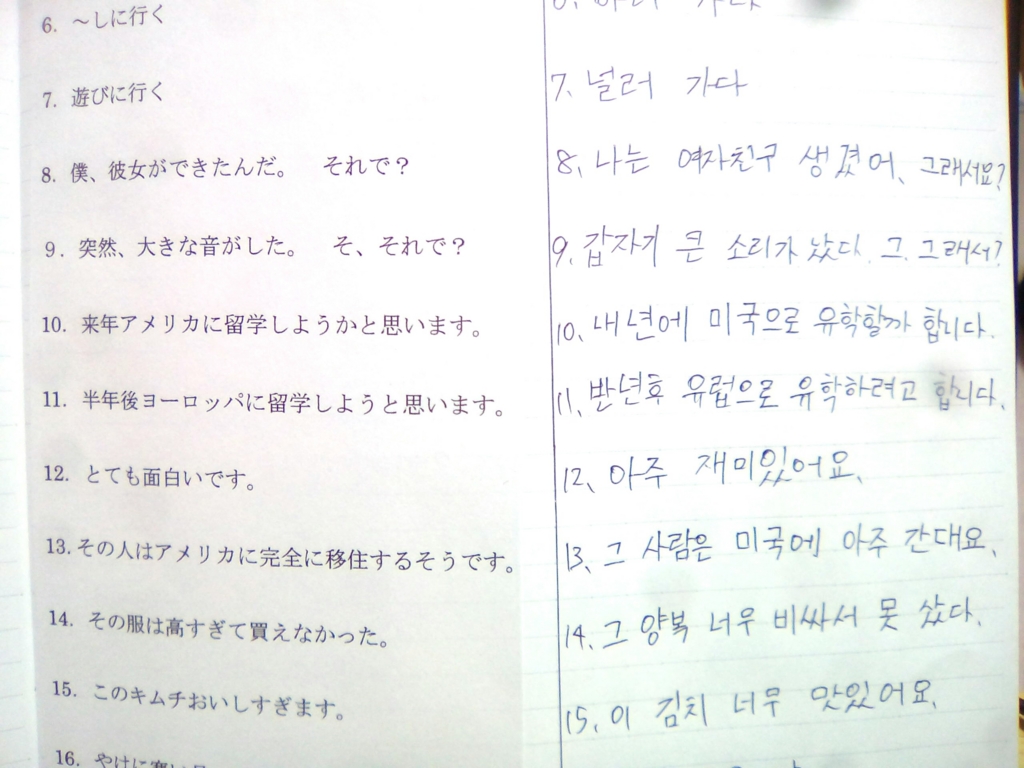 6. ～しに行く
7. 遊びに行く
8. 僕、彼女ができたんだ。 それで？
9. 突然、大きな音がした。 そ、それで？
10. 来年アメリカに留学しようかと思います。
11. 半年後ヨーロッパに留学しようと思います。
12. とても面白いです。
13. その人はアメリカに完全に移住するそうです。
14. その服は高すぎて買えなかった。
15. このキムチおいしすぎます。
16. やけに寒い
7. 널러 가다
8. 나는 여자친구 생겼어. 그래서요?
9. 갑자기 큰 소리가 났다. 그. 그래서?
10. 내년에 미국으로 유학할까 합니다.
11. 반년후 유럽으로 유학하려고 합니다.
12. 아주 재미있어요.
13. 그 사람은 미국에 아주 간대요.
14. 그 양복 너무 비싸서 못 샀다.
15. 이 김치 너무 맛있어요.